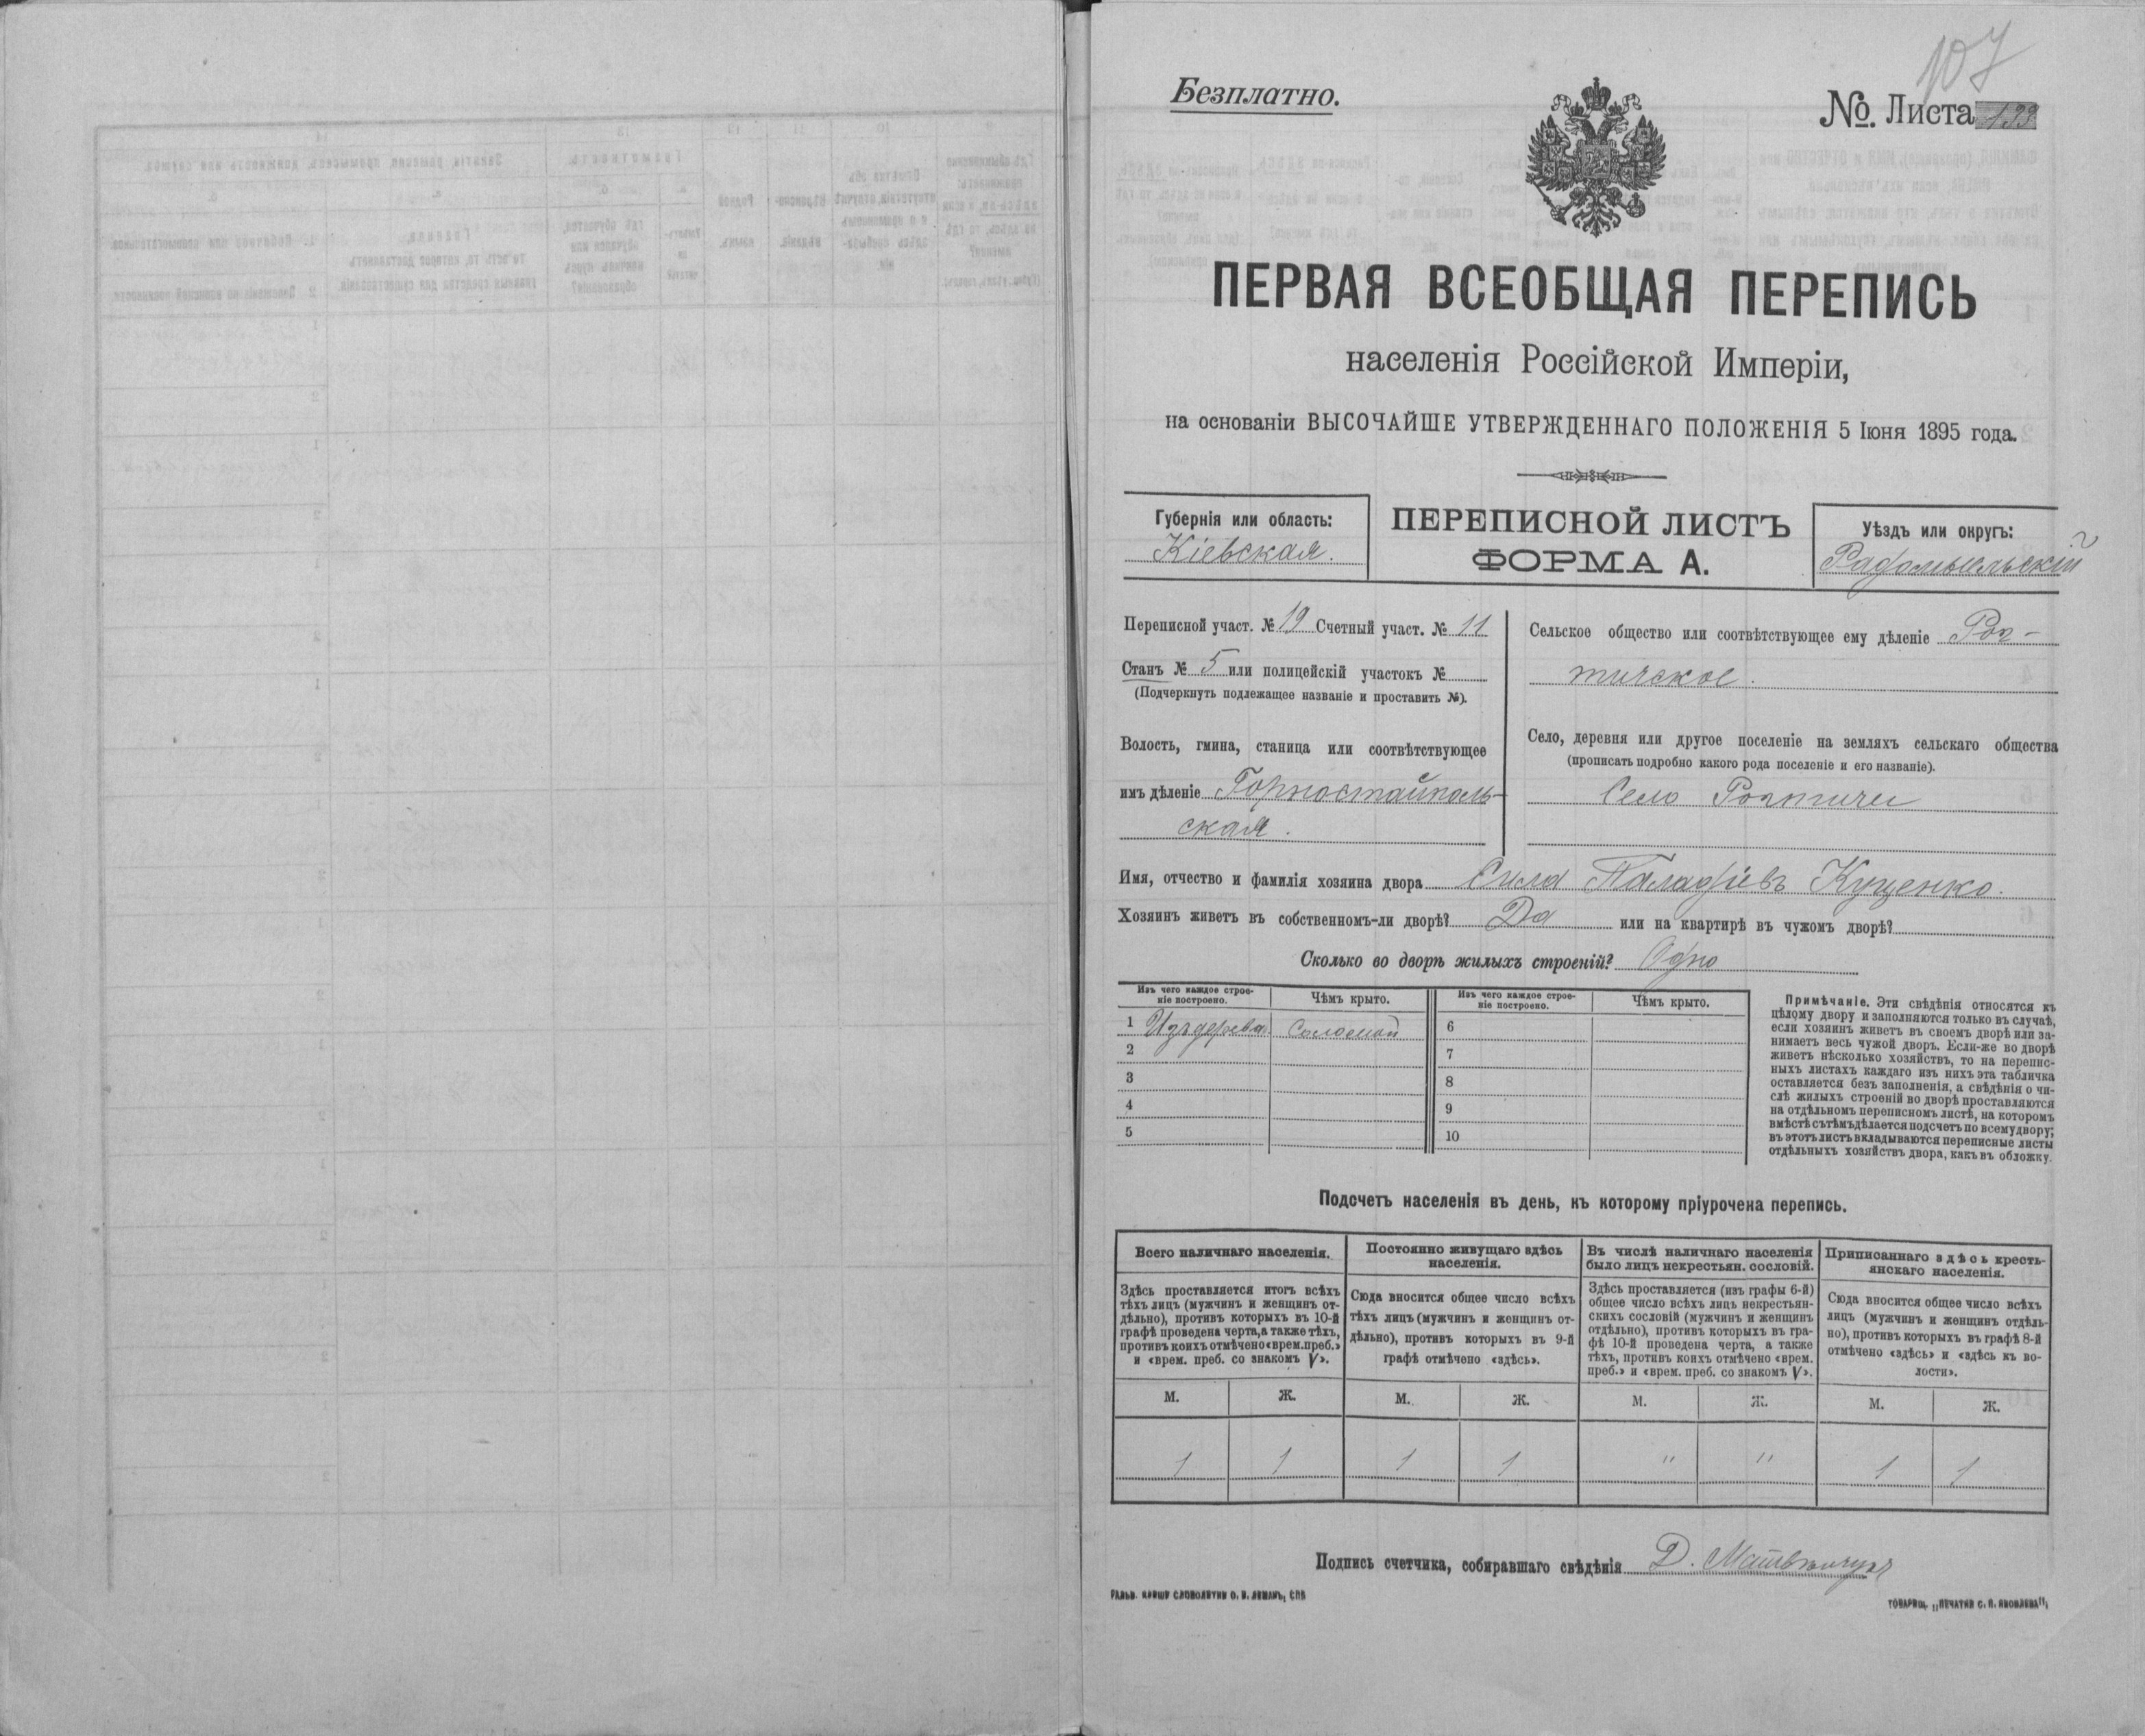 107
Безплатно.
№. Листа 133
ПЕРВАЯ ВСЕОБЩАЯ ПЕРЕПИСЬ
населенія Россійской Имперіи,
на основаніи ВЫСОЧАЙШЕ УТВЕРЖДЕННАГО ПОЛОЖЕНІЯ 5 Іюня 1895 года.
Губернія или область:
Кіевская.
ПЕРЕПИСНОЙ ЛИСТЪ
ФОРМА А.
Уѣздъ или округъ:
Радомысльскій
Переписной участ. № 19 Счетный участ. № 11
Станъ № 5 или полицейскій участокъ №
(Подчеркнуть подлежащее названіе и проставить №).
Волость, гмина, станица или соотвѣтствующее
имъ дѣленіе Горностайполь-
ская.
Сельское общество или соотвѣтствующее ему дѣленіе
Село, деревня или другое поселеніе на земляхъ сельскаго общества
(прописать подробно какого рода поселеніе и его названіе).
Село
Имя, отчество и фамилія хозяина двора Сила Куценко.
Хозяинъ живетъ въ собственномъ-ли дворѣ? Да или на квартирѣ въ чужомъ дворѣ?
Сколько во дворѣ жилыхъ строеній? Одно
Изъ чего каждое строе-
ніе построено.
Чѣмъ крыто.
Изъ чего каждое строе-
ніе построено.
Чѣмъ крыто.
1 Изъ дерева Соломой
2
3
4
5
6
7
8
9
10
Примѣчаніе. Эти свѣдѣнія относятся къ
цѣлому двору и заполняются только въ случаѣ,
если хозяинъ живетъ въ своемъ дворѣ или за-
нимаетъ весь чужой дворъ. Если-же во дворѣ
живетъ нѣсколько хозяйствъ, то на перепис-
ныхъ листахъ каждаго изъ нихъ эта табличка
оставляется безъ заполненія, а свѣдѣнія о чи-
слѣ жилыхъ строеній во дворѣ проставляются
на отдѣльномъ переписномъ листѣ, на которомъ
вмѣстѣ съ тѣмъ дѣлается подсчетъ по всему двору;
въ этотъ листъ вкладываются переписные листы
отдѣльныхъ хозяйствъ двора, какъ въ обложку.
Подсчетъ населенія въ день, къ которому пріурочена перепись.
Всего наличнаго населенія.
Здѣсь проставляется итогъ всѣхъ
тѣхъ лицъ (мужчинъ и женщинъ от-
дѣльно), противъ которыхъ въ 10-й
графѣ проведена черта, а также тѣхъ,
противъ коихъ отмѣчено «врем. преб.»
и «врем. преб. со знакомъ V».
Постоянно живущаго здѣсь
населенія.
Сюда вносится общее число всѣхъ
тѣхъ лицъ (мужчинъ и женщинъ от-
дѣльно), противъ которыхъ въ 9-й
графѣ отмѣчено «здѣсь».
Въ числѣ наличнаго населенія
было лицъ некрестьян. сословій.
Здѣсь проставляется (изъ графы 6-й)
общее число всѣхъ лицъ некрестьян-
скихъ сословій (мужчинъ и женщинъ
отдѣльно), противъ которыхъ въ гра-
фѣ 10-й проведена черта, а также
тѣхъ, противъ коихъ отмѣчено «врем.
преб.» и «врем. преб. со знакомъ V».
Приписаннаго здѣсь кресть-
янскаго населенія.
Сюда вносится общее число всѣхъ
лицъ (мужчинъ и женщинъ отдѣль-
но), противъ которыхъ въ графѣ 8-й
отмѣчено «здѣсь» и «здѣсь къ во-
лости».
М. Ж. М. Ж. М. Ж. М. Ж.
1 1 1 1 " " 1 1
Подпись счетчика, собиравшаго свѣдѣнія Д.
ГАЛЬВ. КЛИШЕ СЛОВОЛИТНИ О. И. ЛЕМАНЪ, СПБ
ТОВАРИЩ. „ПЕЧАТНЯ С. П. ЯКОВЛЕВА"